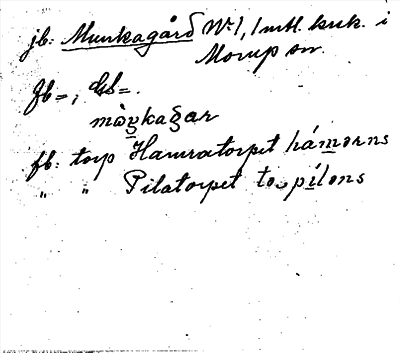 jb: Munkagård No 1, 1 mtl. krk. i
Morup sn.
fb =, Gb =.
mò̀ŋkagar
fb: torp Hamratorpet hámərns
" " Pilatorpet to pílens